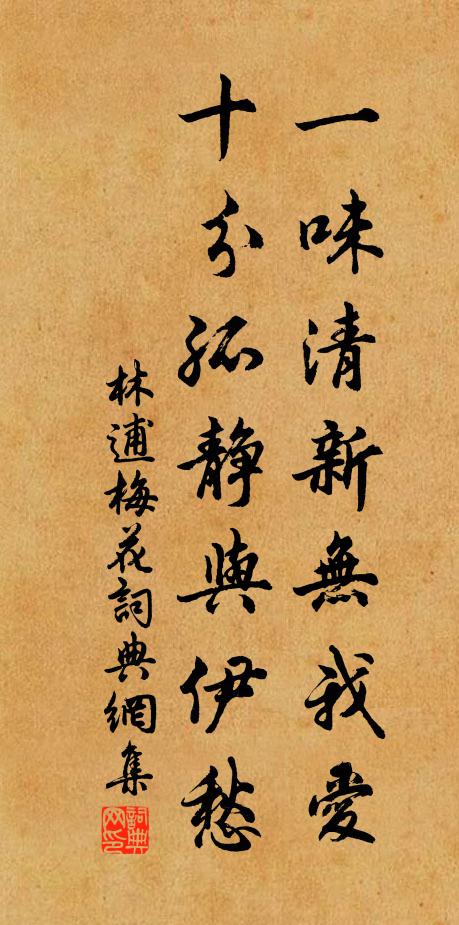 一味清新無我愛
十分孤靜與伊愁
林逋梅花詞典網集
詞典网印